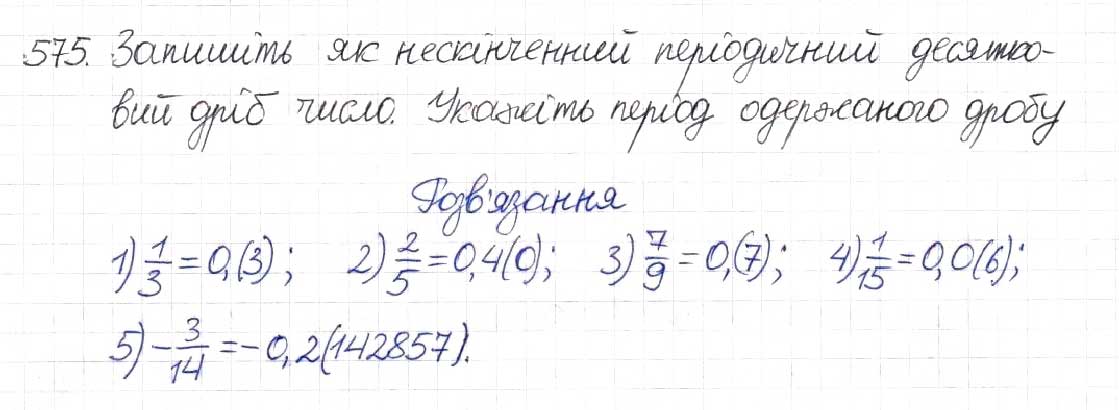 575. Запишіть як нескінченний періодичний десятко-
вий дріб число. Укажіть період одержаного дробу
Розв'язання
1) 1/3 = 0,(3); 2) 2/5 = 0,4(0); 3) 7/9 = 0,(7); 4) 1/15 = 0,0(6);
5) -3/14 = -0,2(142857).